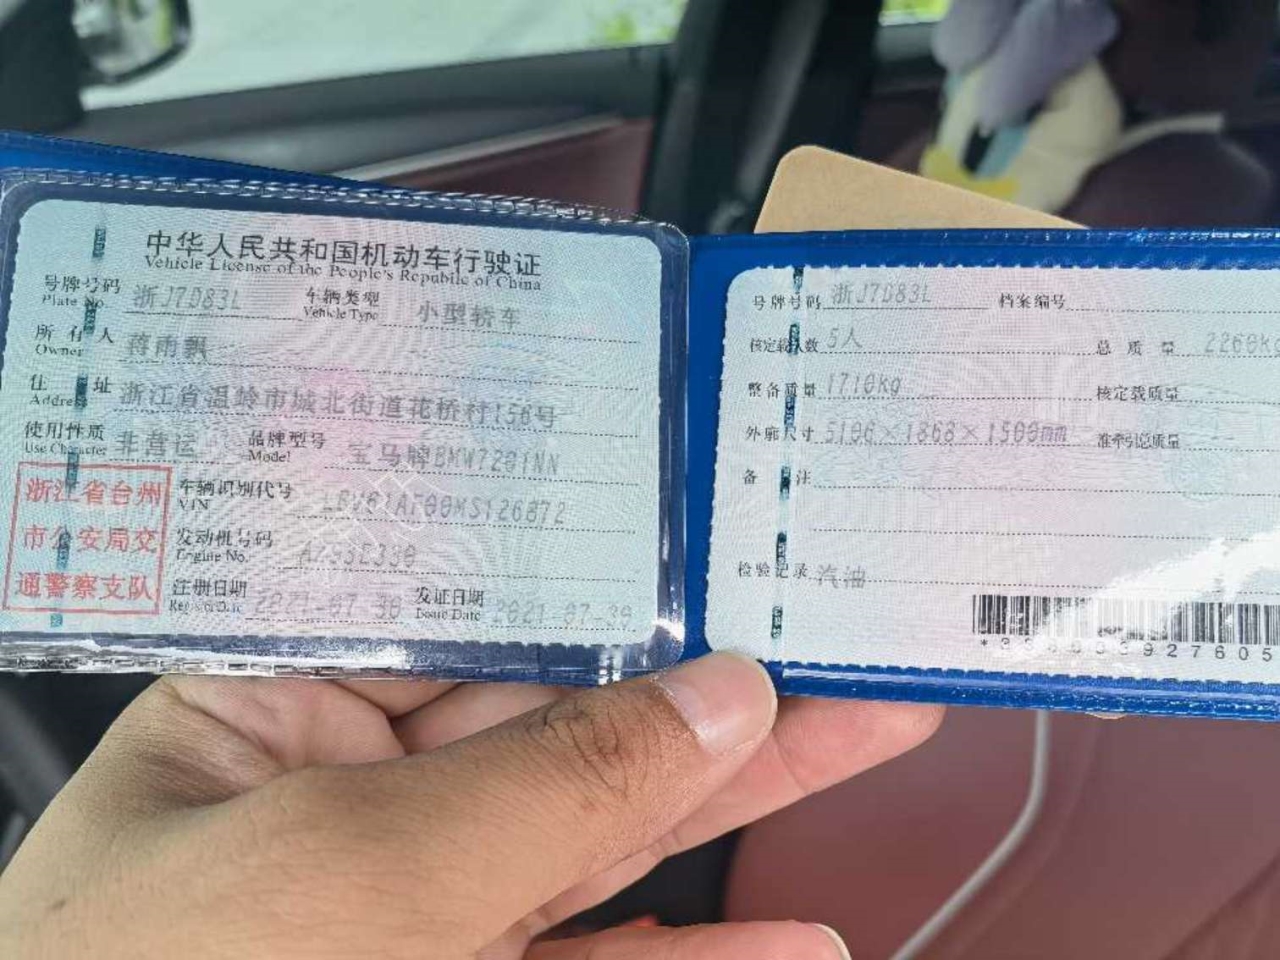 中华人民共和国机动车行驶证
Vehicle License of the People's Republic of China
号牌号码 浙J7D83L 车辆类型 小型轿车
Plate No. Vehicle Type
所有人 蒋雨飘
Owner
住址 浙江省温岭市城北街道花桥村156号
Address
使用性质 非营运 品牌型号 宝马牌BMW7201NN
Use Character Model
浙江省台州
市公安局交
通警察支队
车辆识别代号
VIN
发动机号码
Engine No.
注册日期 2021-07-30 发证日期 2021-07-30
Register Date Issue Date
号牌号码 浙J7D83L 档案编号
核定载人数 5人 总质量 2260kg
整备质量 1710kg 核定载质量 --
外廓尺寸 5106×1868×1500mm 准牵引总质量 --
备注
检验记录 汽油